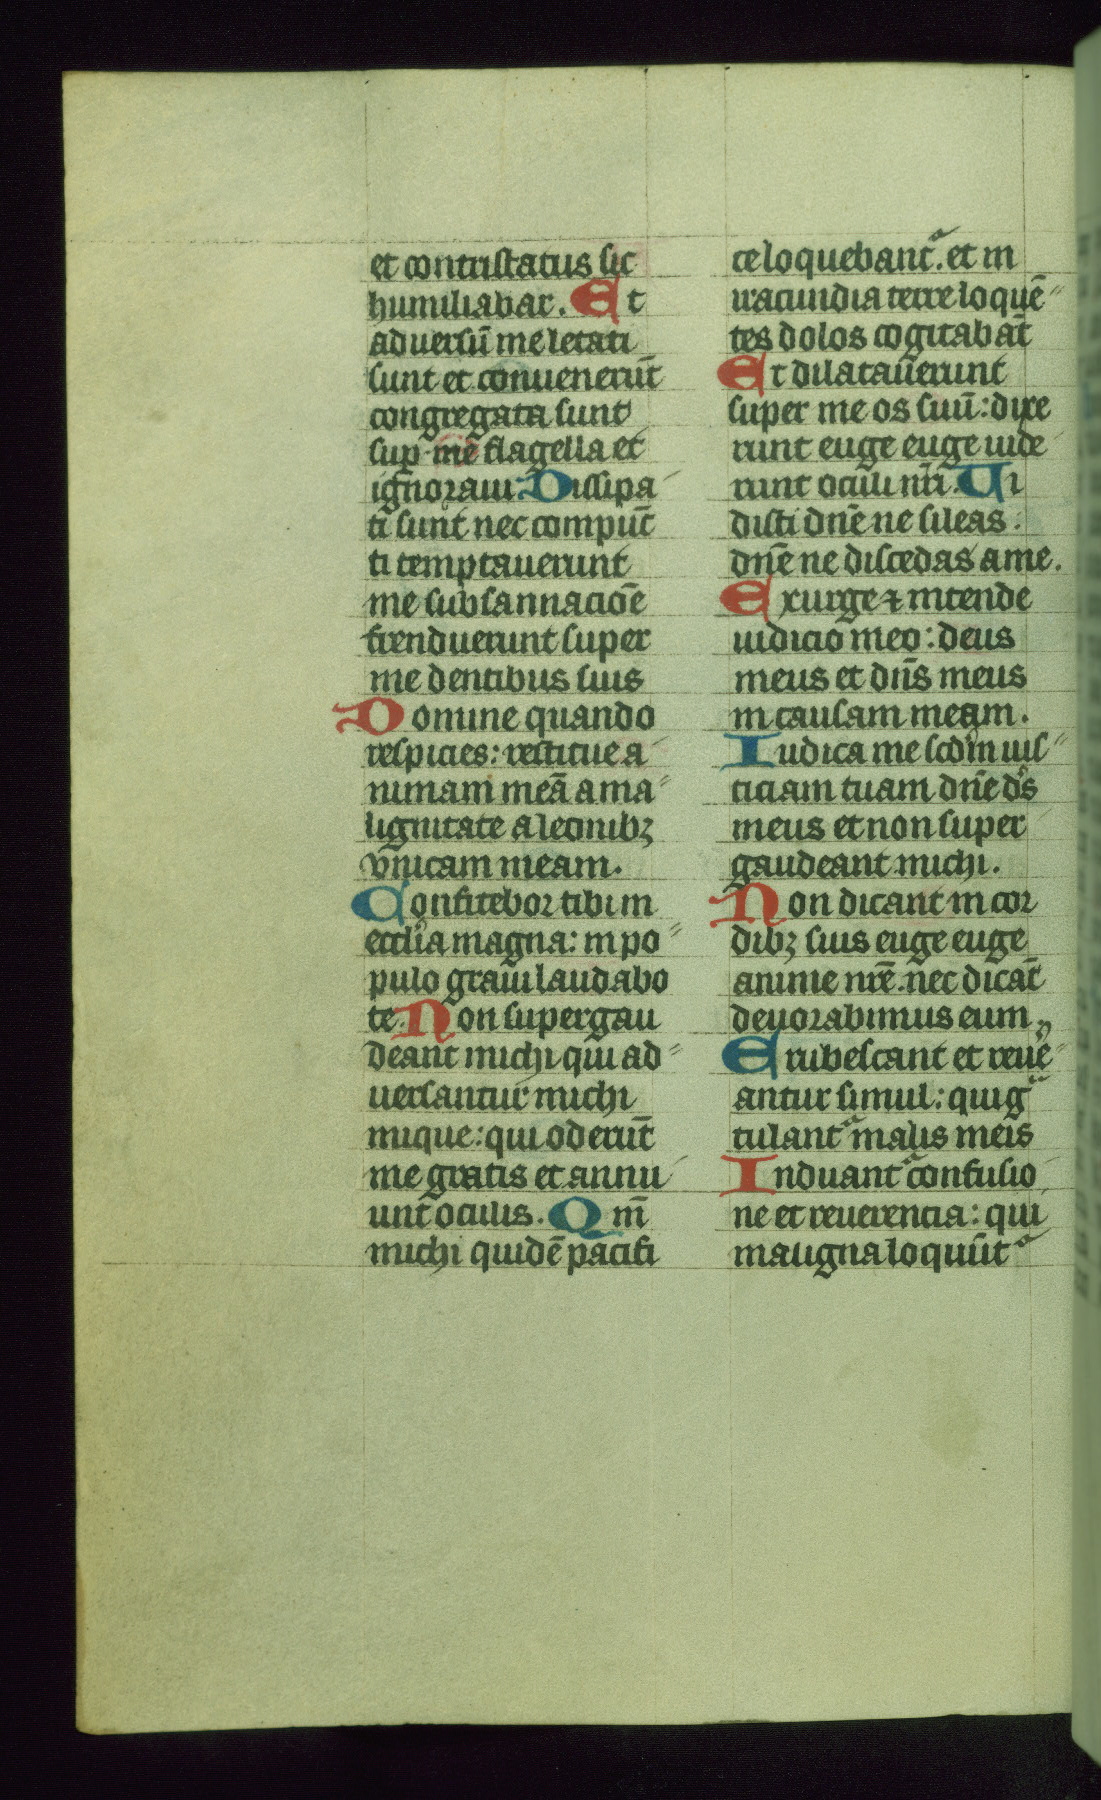 et contristatus sic
humiliabar. Et
adversū me letati
sunt et convenerūt
congregata sunt
sup me flagella et
ignoravi: Dissipa
ti sunt nec compūc
ti temptaverunt
me subsannacioē
frenduerunt super
me dentibus suis
Domine quando
respicies: restitue a
nimam meā a ma
lignitate a leonibꝫ
vnicam meam.
Confitebor tibi in
ecclīa magna: in po
pulo gravi laudabo
te. Non supergau
deant michi qui ad
versantur michi
inique: qui oderūt
me gratis et annu
unt oculis. Qm̄
michi quidē pacifi
ce loquebantᵃ. et in
iracundia terre loquē
tes dolos cogitabāt
Et dilataverunt
super me os suū: dixe
runt euge euge vide
runt oculi nr̄i. Vi
disti dn̄e ne sileas.
dn̄e ne discedas a me.
Exurge ⁊ intende
iudicio meo: deus
meus et dn̄s meus
in causam meam.
Iudica me scdm ius
ticiam tuam dn̄e ds
meus et non super
gaudeant michi.
Non dicant in cor
dibꝫ suis euge euge
anime nr̄e. nec dicāt
devorabimus eum
Erubescant et revē
antur simul: qui gᵃ
tulantᵃ malis meis
Induantᵃ confusio
ne et reverencia: qui
maligna loquūtᵃ